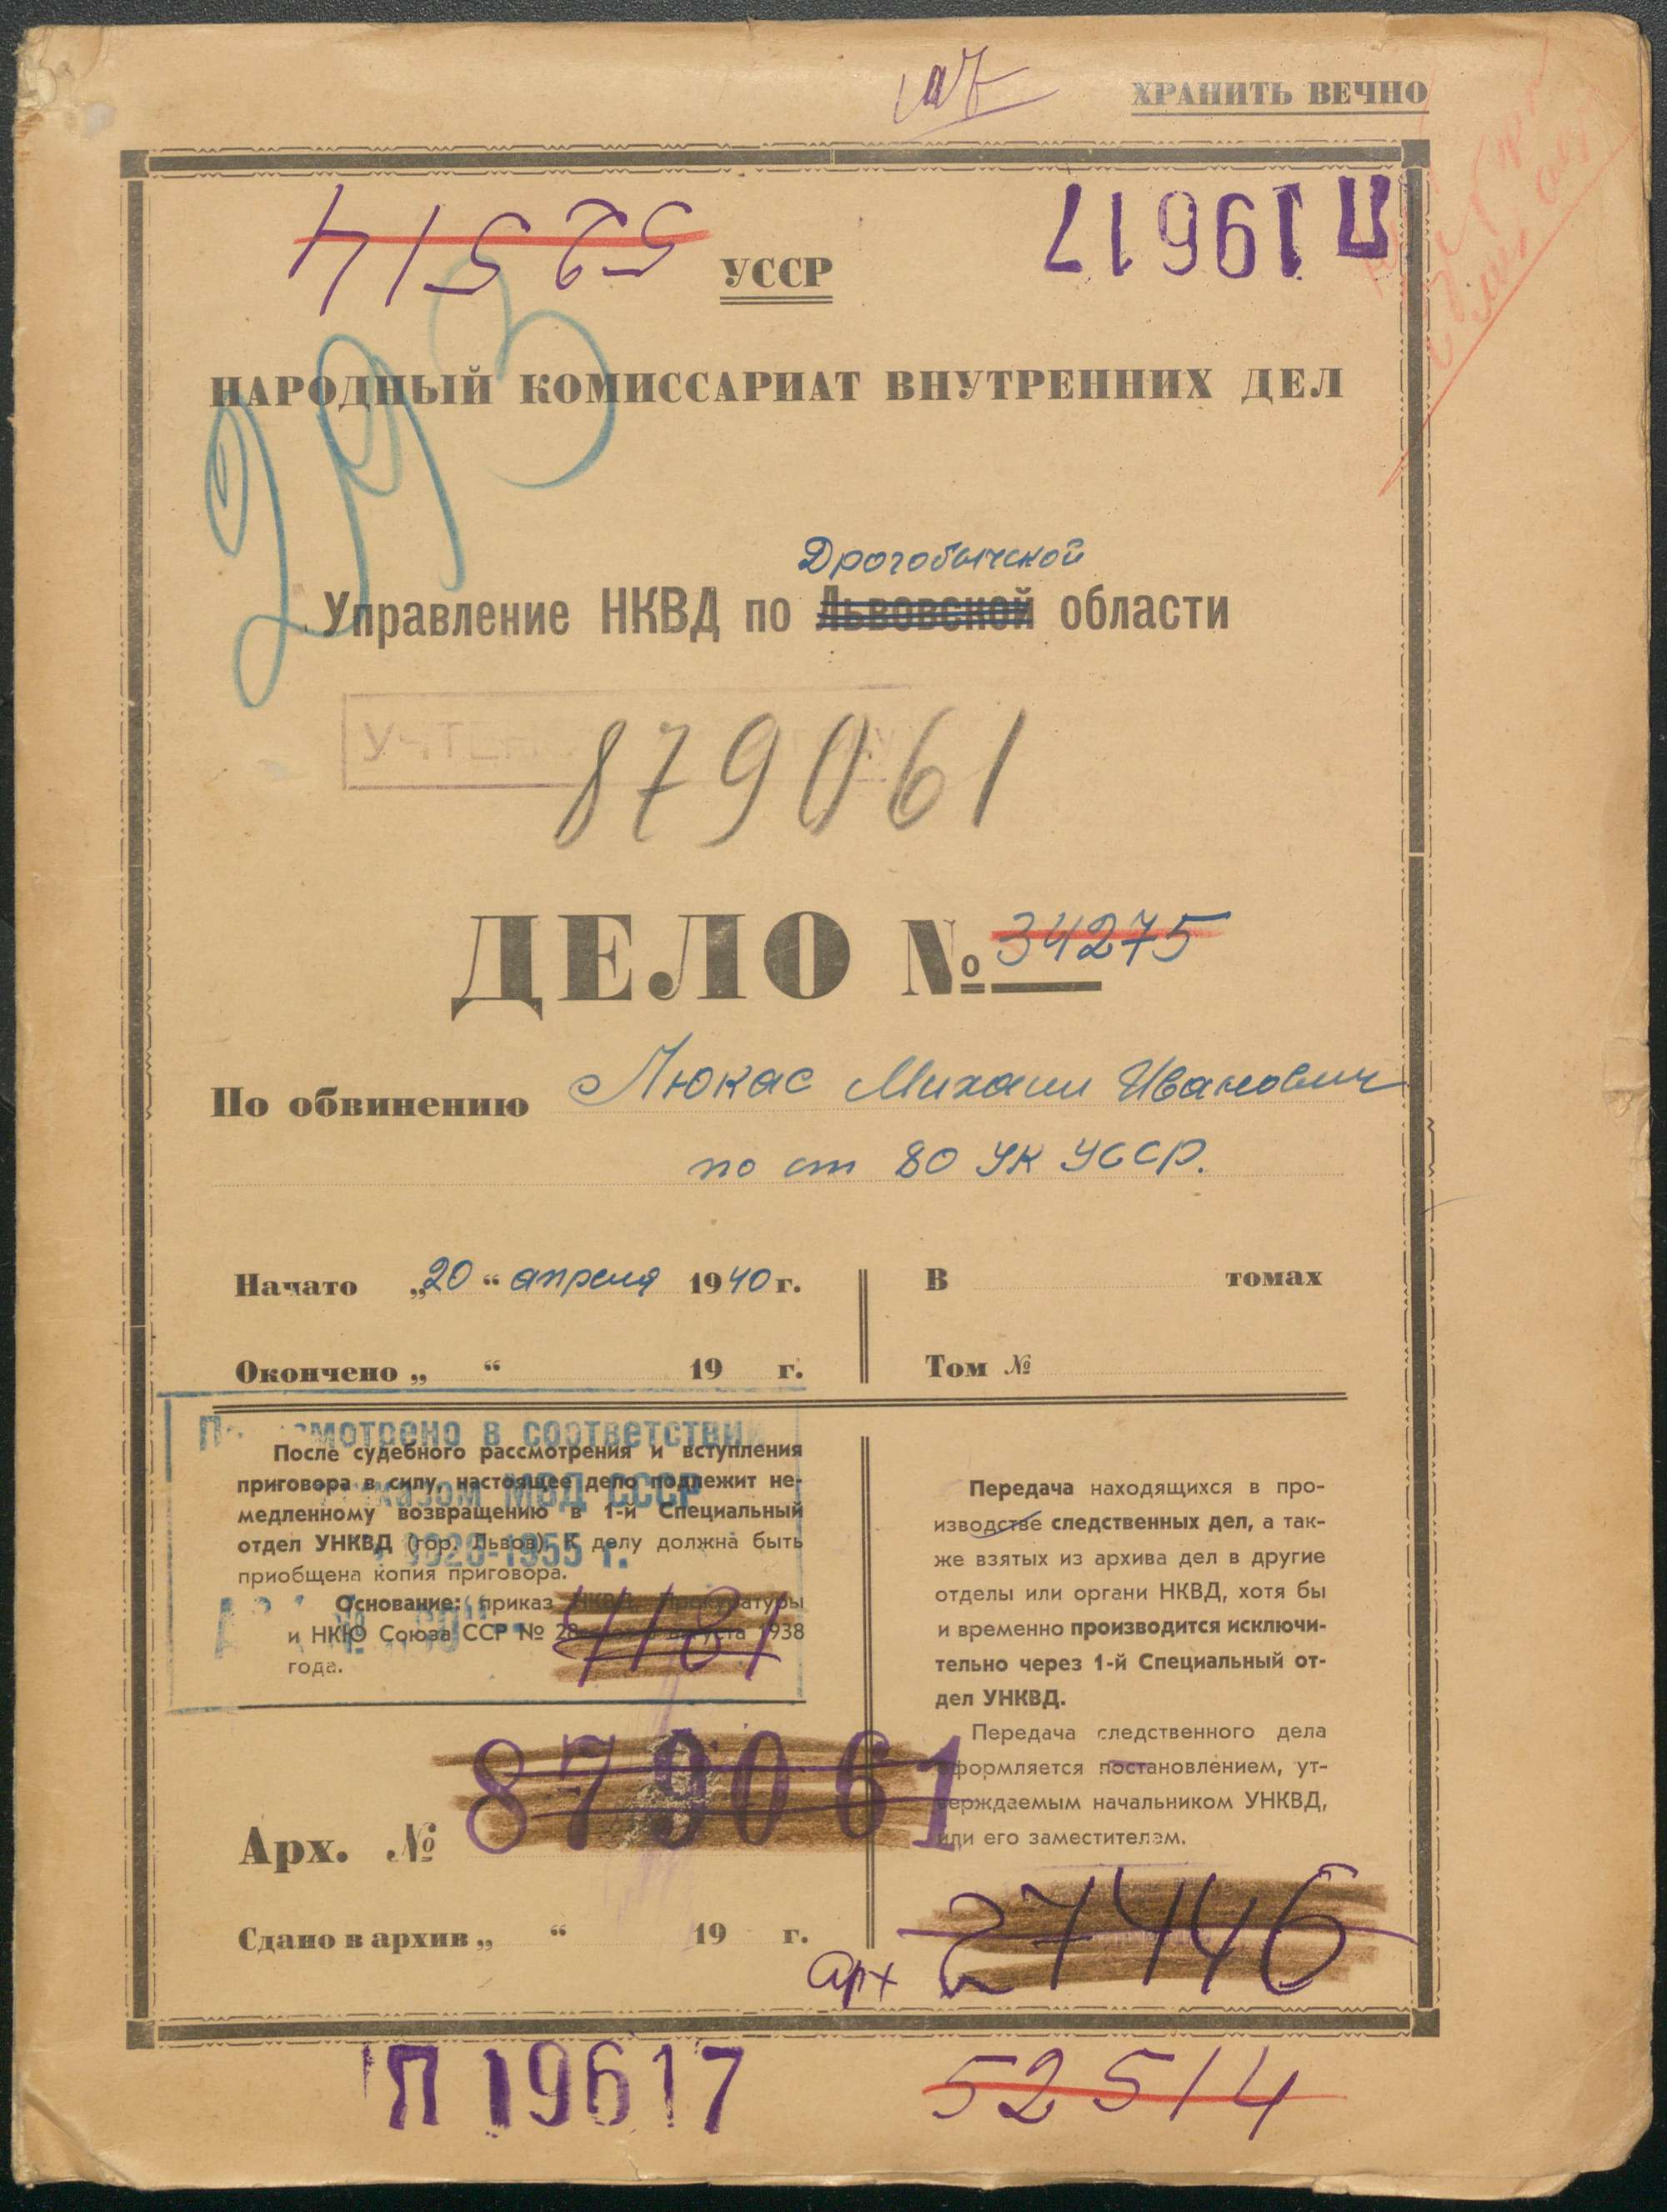 ХРАНИТЬ ВЕЧНО
52514
П 19617
УССР
293
НАРОДНЫЙ КОМИССАРИАТ ВНУТРЕННИХ ДЕЛ
Дрогобычской
Управление НКВД по Львовской области
879061
ДЕЛО № 34275
По обвинению Люкас Михаил Иванович
по ст 80 УК УССР.
Начато „20“ апреля 1940 г.
Окончено „ “ 19 г.
В томах
Том №
смотрено в соответствии
приказом МВД СССР
1955 г.
После судебного рассмотрения и вступления
приговора в силу, настоящее дело подлежит не-
медленному возвращению в 1-й Специальный
отдел УНКВД (гор. Львов). К делу должна быть
приобщена копия приговора.
Основание: приказ НКВД, Прокуратуры
и НКЮ Союза ССР № августа 1938
года.
Передача находящихся в про-
изводстве следственных дел, а так-
же взятых из архива дел в другие
отделы или органи НКВД, хотя бы
и временно производится исключи-
тельно через 1-й Специальный от-
дел УНКВД.
Передача следственного дела
оформляется постановлением, ут-
верждаемым начальником УНКВД,
или его заместителем.
Арх. № 879061
Сдано в архив „ “ 19 г.
арх 27446
П 19617
52514